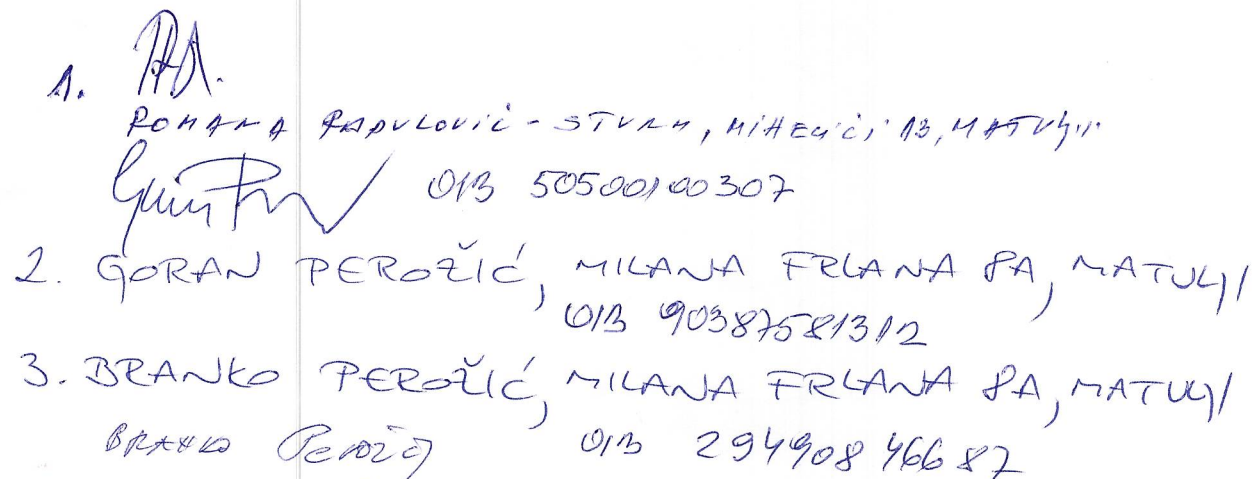 1.
ROMANA RADULOVIĆ - STURM, MIHELIĆI 13, MATULJI
OIB 50500100307
2. GORAN PEROŽIĆ, MILANA FRLANA 8A, MATULJI
OIB 90387581312
3. BRANKO PEROŽIĆ, MILANA FRLANA 8A, MATULJI
BRANKO Perožić OIB 29490846687